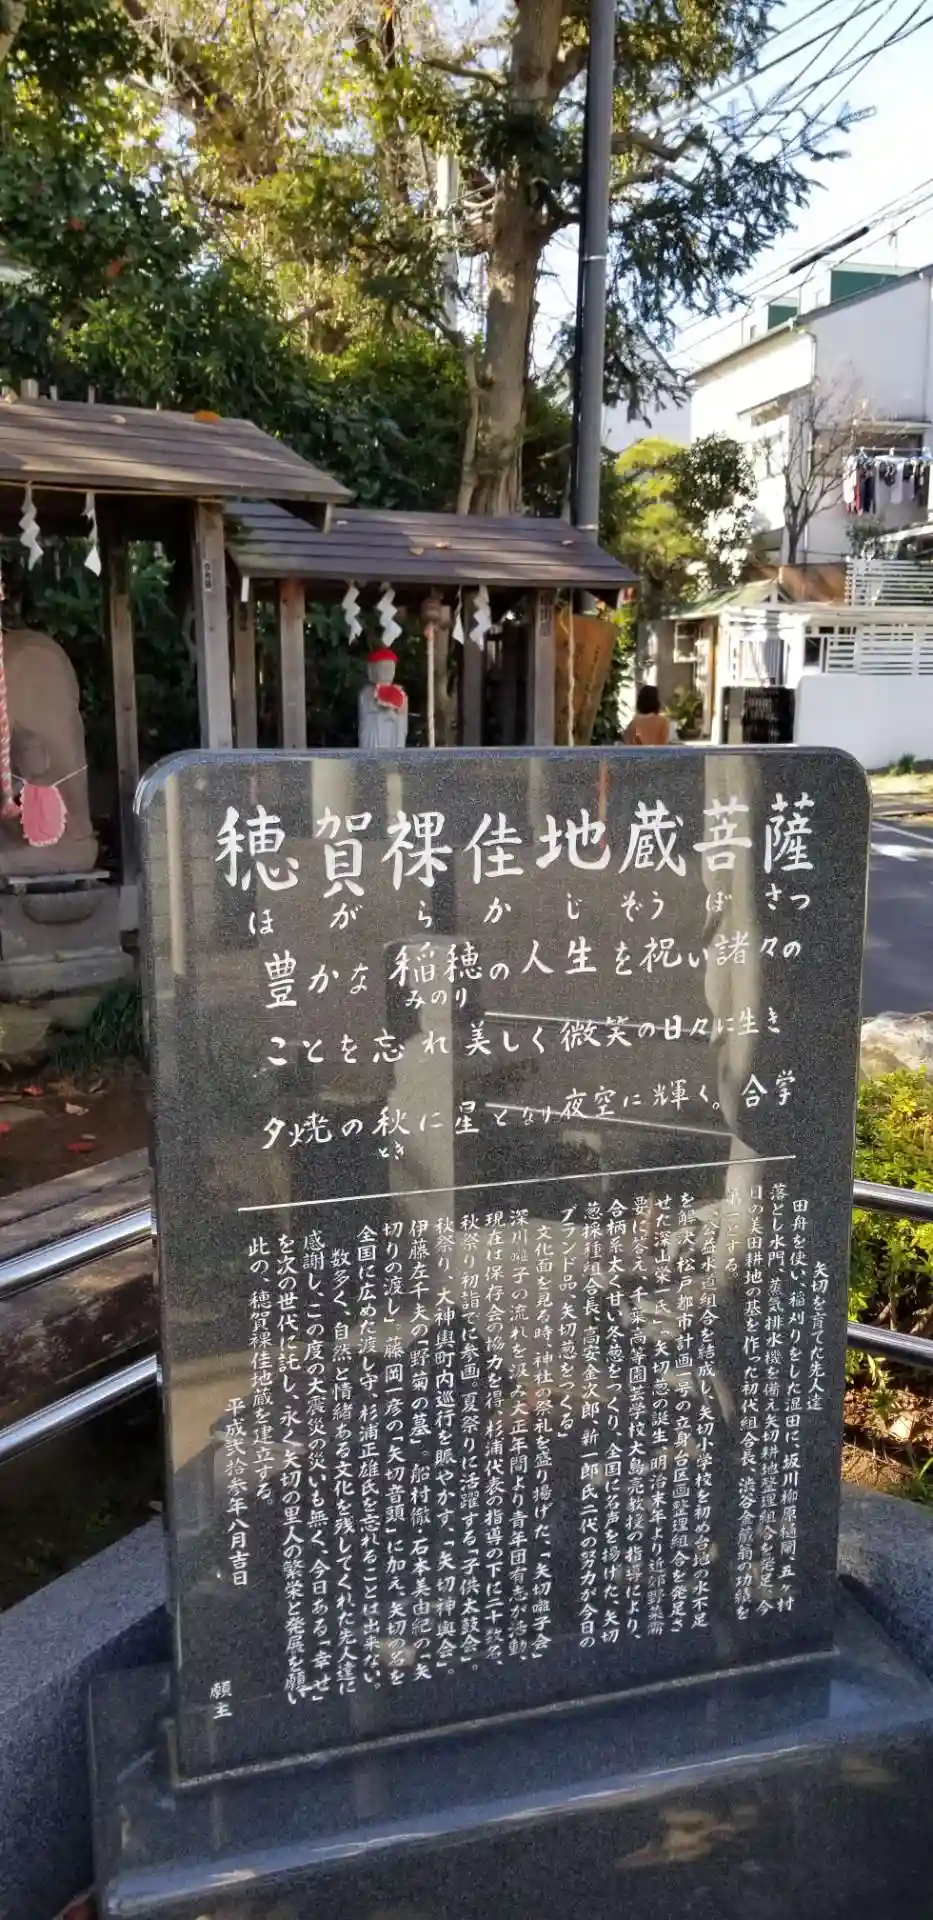 穂賀裸佳地蔵菩薩
ほがらかじぞうぼさつ
豊かな稲穂の人生を祝い諸々の
みのり
ことを忘れ美しく微笑の日々に生き
夕焼の秋に星となり夜空に輝く。合掌
とき
矢切を育てた先人達
田舟を使い、稲刈りをした湿田に、坂川柳原樋門、五ヶ村
落とし水門、蒸気排水機を備え矢切耕地整理組合を発足、今
日の美田耕地の基を作った初代組合長、渋谷金蔵翁の功績を
第一とする。
公益水道組合を結成し、矢切小学校を初め台地の水不足
を解決、松戸都市計画一号の立身台区画整理組合を発足さ
せた深山栄一氏」「矢切葱の誕生、明治末年より近郊野菜需
要に答え、千葉高等園芸学校大島亮教授の指導により、
合柄系太く甘い冬葱をつくり、全国に名声を揚げた、矢切
葱採種組合長、高安金次郎、新一郎氏二代の努力が今日の
ブランド品、矢切葱をつくる」
文化面を見る時、神社の祭礼を盛り揚げた、「矢切囃子会」
深川囃子の流れを汲み大正年間より青年団有志が活動、
現在は保存会の協力を得、杉浦代表の指導の下に二十数名、
秋祭り初詣でに参画。夏祭りに活躍する「子供太鼓会」。
秋祭り、大神輿町内巡行を賑やかす、「矢切神輿会」。
伊藤左千夫の「野菊の墓」。船村徹・石本美由紀の「矢
切りの渡し」。藤岡一彦の「矢切音頭」に加え、矢切の名を
全国に広めた渡し守、杉浦正雄氏を忘れることは出来ない。
数多く、自然と情緒ある文化を残してくれた先人達に
感謝し、この度の大震災の災いも無く、今日ある「幸せ」
を次の世代に託し、永く矢切の里人の繁栄と発展を願い
此の、穂賀裸佳地蔵を建立する。
平成弐拾参年八月吉日
願主